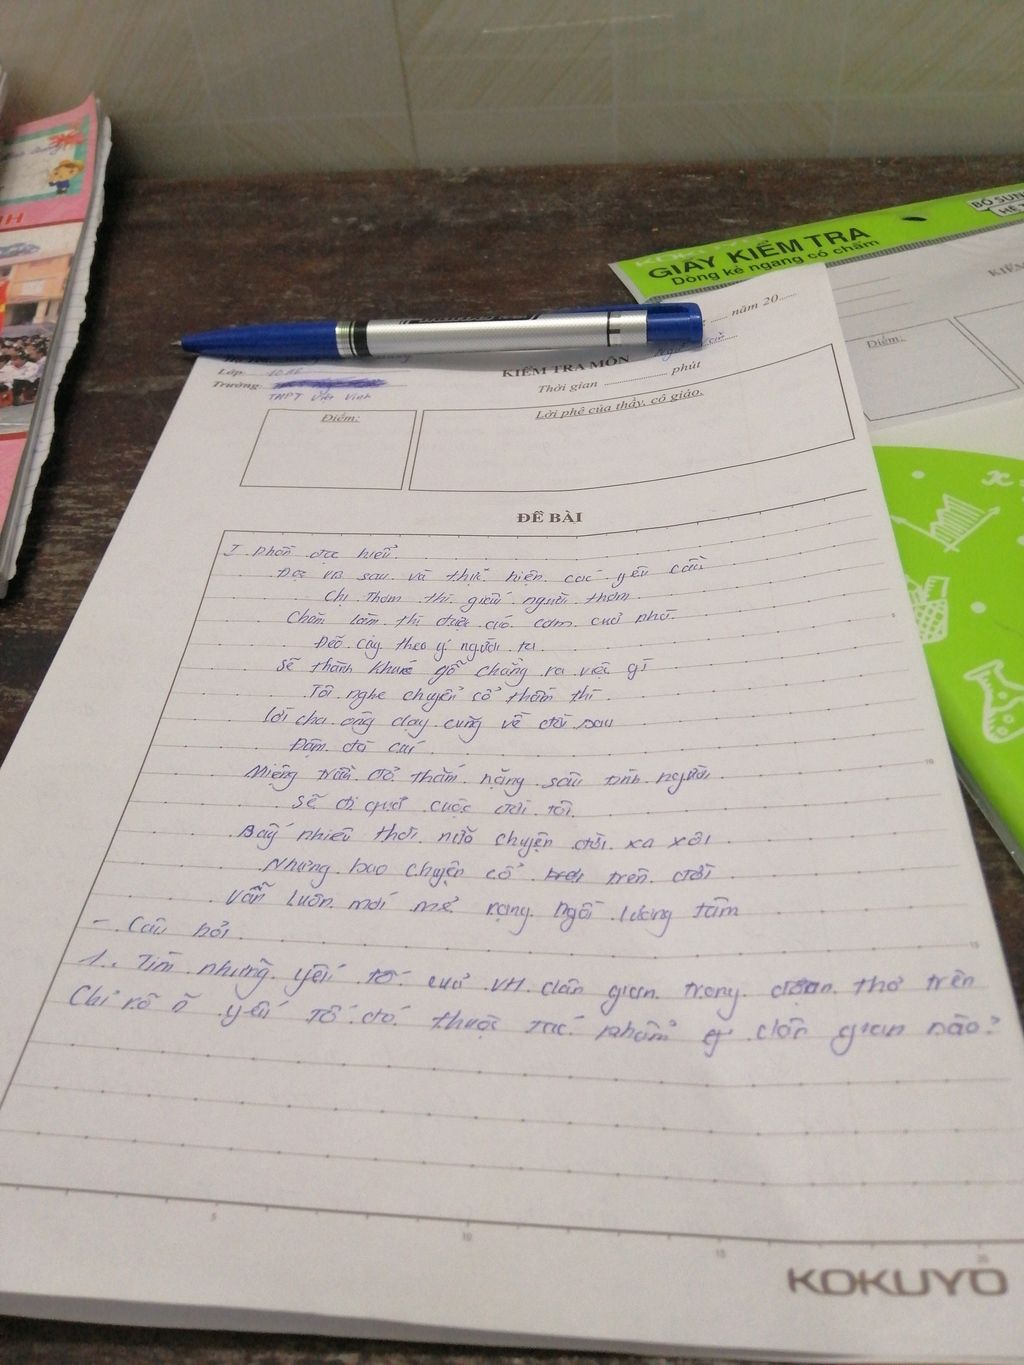 BỔ SUN
GIẤY KIỂM TRA
Dòng kẻ ngang có chấm
năm 20......
Lớp:
KIỂM TRA MÔN
Trường:
THPT Việt Vinh
Thời gian .................. phút
Điểm:
Lời phê của thầy, cô giáo.
Điểm:
ĐỀ BÀI
I. Phần đọc hiểu
Đọc VB sau và thực hiện các yêu cầu
Chị Thơm thì giấu người thơm
Chăm làm thì được áo cơm cửa nhà
Đẽo cày theo ý người ta
Sẽ thành khúc gỗ chẳng ra việc gì
Tôi nghe chuyện cổ thầm thì
lời cha ông dạy cũng vì đời sau
Đậm đà cái
Miếng trầu đỏ thắm nặng sâu tình người
sẽ đi qua cuộc đời tôi
Bấy nhiêu thời nữa chuyện đời xa xôi
Nhưng bao chuyện cổ trên đời
Vẫn luôn mới mẻ rạng ngời lương tâm
- Câu hỏi
1. Tìm những yếu tố của VH dân gian trong đoạn thơ trên
Chỉ rõ yếu tố đó thuộc tác phẩm dân gian nào?
5 10 15 20
KOKUYO